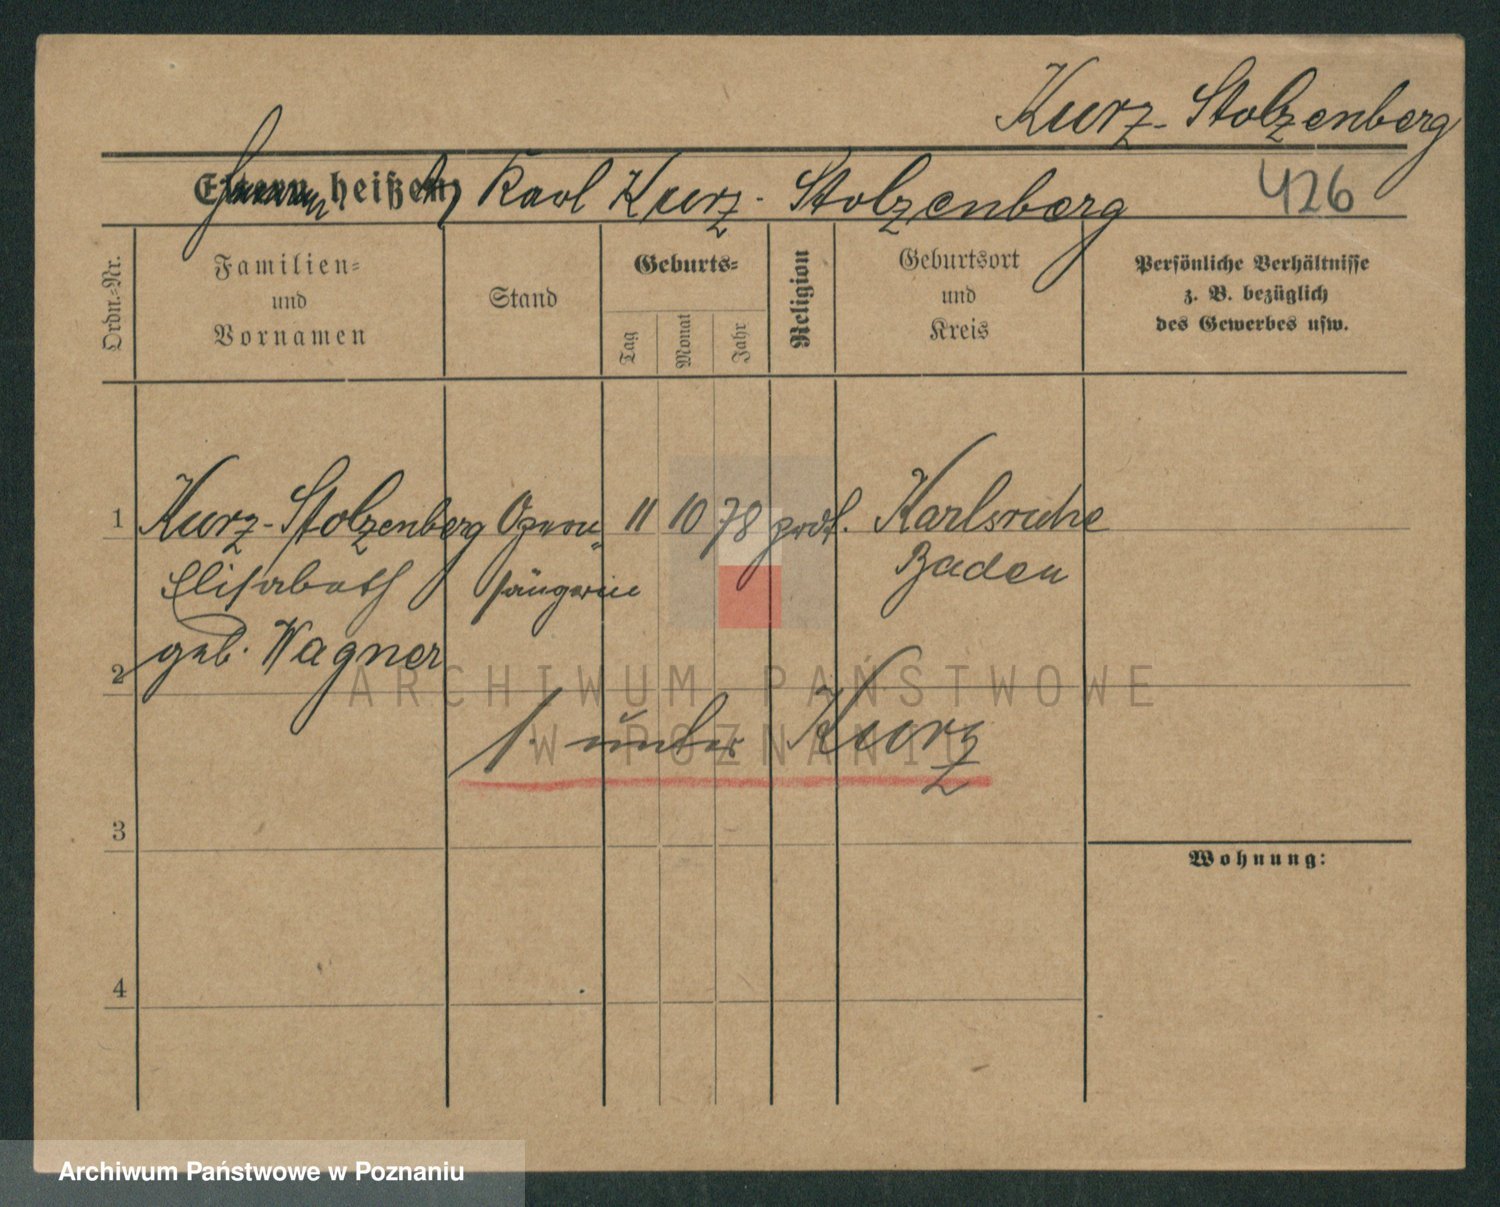 Kurz-Stolzenberg
Eltern heißen: Karl Kurz-Stolzenberg 426
Ordn.-Nr.
Familien-
und
Vornamen
Stand
Geburts-
Tag
Monat
Jahr
Religion
Geburtsort
und
Kreis
Persönliche Verhältnisse
z. B. bezüglich
des Gewerbes usw.
1 Kurz-Stolzenberg Opern- 11 10 78 prot. Karlsruhe
Elisabeth sängerin Baden
geb. Wagner
2
ARCHIWUM PAŃSTWOWE
W POZNANIU
f. unter Kurz
3
Wohnung:
4
Archiwum Państwowe w Poznaniu